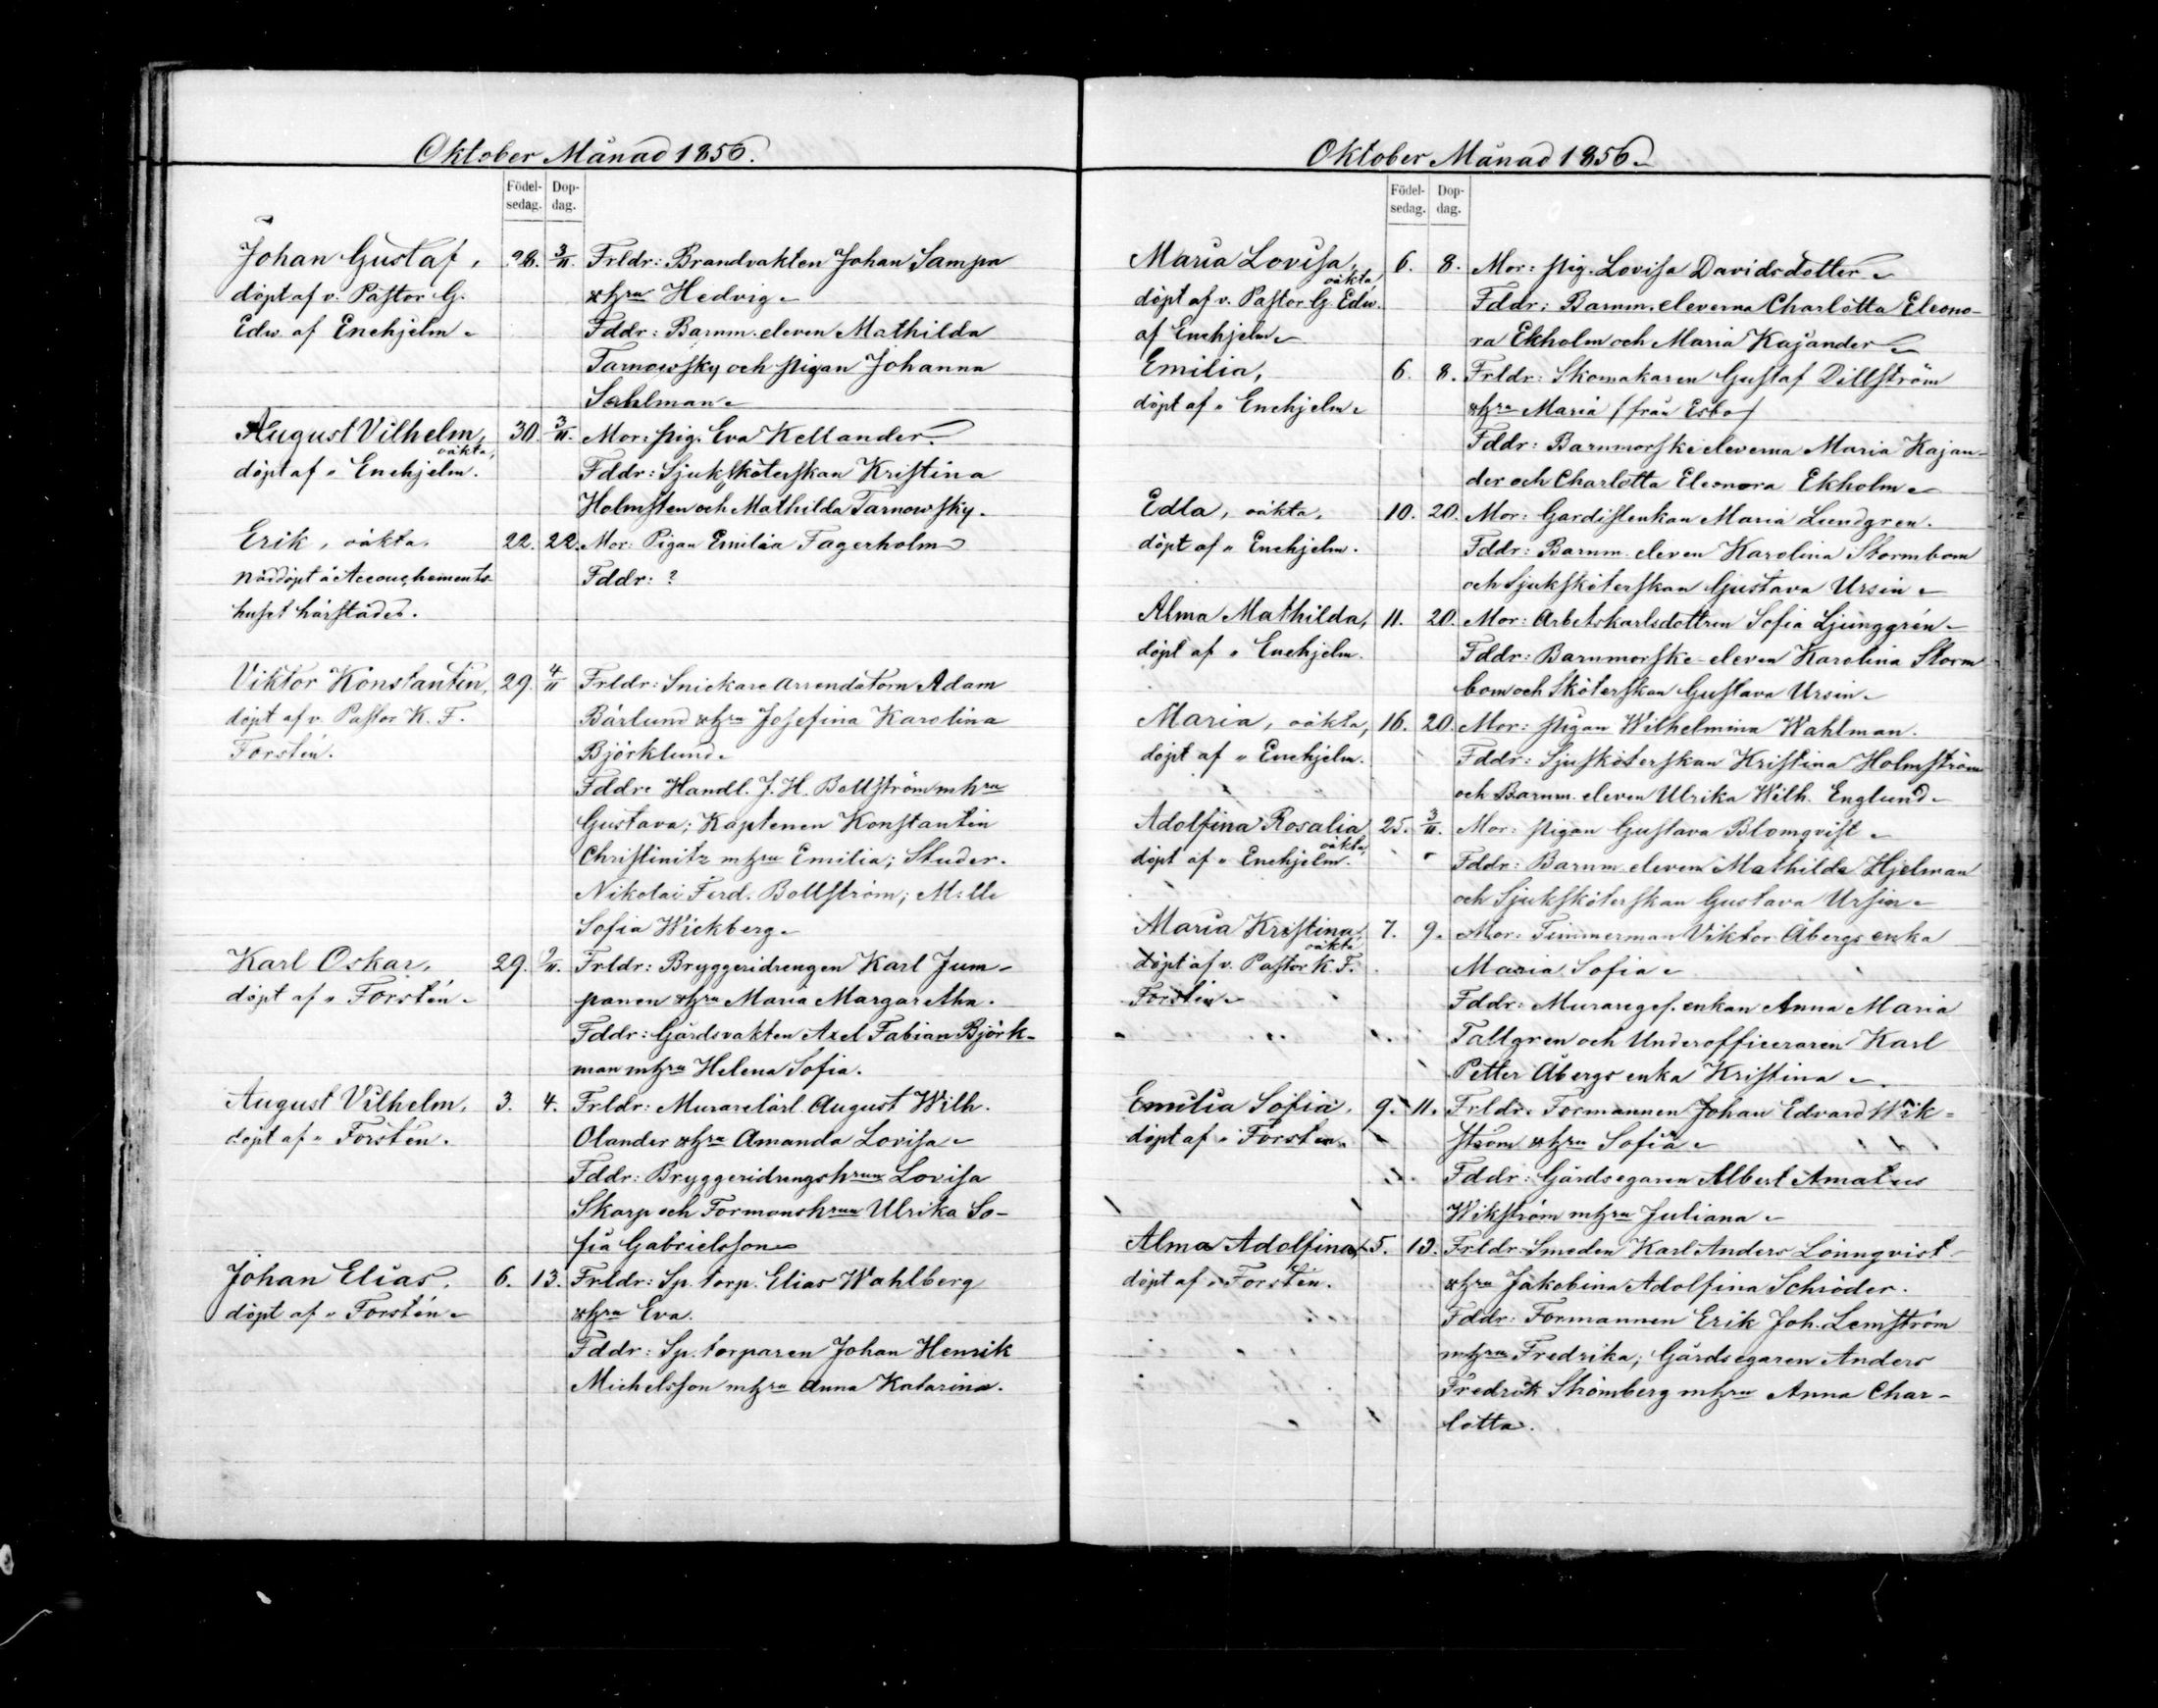 Oktober Månad 1856.
Födel-
sedag.
Dop-
dag.
Johan Gustaf,
döpt af v. Pastor G.
Edw. af Enehjelm.
28.
3/11.
Frldr: Brandvakten Johan Sampa
o hru Hedvig.
Fddr: Barnm. eleven Mathilda
Tarnowsky och pigan Johanna
Sahlman.
August Vilhelm,
oäkta,
döpt af " Enehjelm.
30.
3/11.
Mor: pig. Eva Kellander.
Fddr: Sjuksköterskan Kristina
Holmsten och Mathilda Tarnowsky.
Erik, oäkta.
nöddöpt å Accouchements-
huset härstädes.
22.
22.
Mor: Pigan Emilia Fagerholm
Fddr: ?
Viktor Konstantin,
döpt af v. Pastor K. F.
Forstén.
29.
4/11
Frldr: Snickare arrendatorn Adam
Bärlund o hru Josefina Karolina
Björklund.
Fddr: Handl. J. H. Bollström m hru
Gustava; Kaptenen Konstantin
Christinitz m hru Emilia; Studer.
Nikolai Ferd. Bollström; M:lle
Sofia Wickberg.
Karl Oskar,
döpt af " Forstén.
29.
9/11.
Frldr: Bryggeridrengen Karl Jum-
panen o hru Maria Margaretha.
Fddr: Gårdsvakten Axel Fabian Björk-
man m hru Helena Sofia.
August Vilhelm,
döpt af " Forstén.
3.
4.
Frldr: Murarelärl. August Wilh.
Olander o hru Amanda Lovisa.
Fddr: Bryggeridrengshrun Lovisa
Skarp och Formanshrun Ulrika So-
fia Gabrielsson
Johan Elias,
döpt af " Forstén.
6.
13.
Frldr: Sp. torp. Elias Wahlberg
o hru Eva.
Fddr: Sp. torparen Johan Henrik
Michelsson m hru Anna Katarina.
Oktober Månad 1856.
Födel-
sedag.
Dop-
dag.
Maria Lovisa,
oäkta,
döpt af v. Pastor G. Edw.
af Enehjelm.
6.
8.
Mor: pig. Lovisa Davidsdotter
Fddr: Barnm. eleverna Charlotta Eleono-
ra Ekholm och Maria Kajander
Emilia,
döpt af " Enehjelm.
6.
8.
Frldr: Skomakaren Gustaf Dillström
o hru Maria (från Esbo)
Fddr: Barnmorske eleverna Maria Kajan-
der och Charlotta Eleonora Ekholm.
Edla, oäkta,
döpt af " Enehjelm.
10.
20.
Mor: Gardistenkan Maria Lundgren.
Fddr: Barnm. eleven Karolina Stormbom
och Sjuksköterskan Gustava Ursin.
Alma Mathilda,
döpt af " Enehjelm.
11.
20.
Mor: Arbetskarlsdottren Sofia Ljunggrén.
Fddr: Barnmorske-eleven Karolina Storm
bom och Sköterskan Gustava Ursin.
Maria, oäkta,
döpt af " Enehjelm.
16.
20.
Mor: pigan Wilhelmina Wahlman.
Fddr: Sjusköterskan Kristina Holmström
och Barnm. eleven Ulrika Wilh. Englund.
Adolfina Rosalia
oäkta,
döpt af " Enehjelm.
25.
3/11.
Mor: pigan Gustava Blomqvist.
Fddr: Barnm. eleven Mathilda Hjelman
och Sjuksköterskan Gustava Ursin.
Maria Kristina,
oäkta
döpt af v. Pastor K. F.
Forstén.
7.
9.
Mor: Timmerman Viktor Åbergs enka
Maria Sofia.
Fddr: Muraregef. enkan Anna Maria
Tallgren och Underofficeraren Karl
Petter Åbergs enka Kristina.
Emilia Sofia,
döpt af " Forstén.
9.
11.
Frldr: Formannen Johan Edvard Wik-
ström o hru Sofia.
Fddr: Gårdsegaren Albert Amatus
Wikström m hru Juliana.
Alma Adolfina,
döpt af " Forstén.
5.
13.
Frldr: Smeden Karl Anders Lönnqvist
o hru Jakobina Adolfina Schröder.
Fddr: Formannen Erik Joh. Lemström
m hru Fredrika; Gårdsegaren Anders
Fredrik Strömberg m hru Anna Char-
lotta.